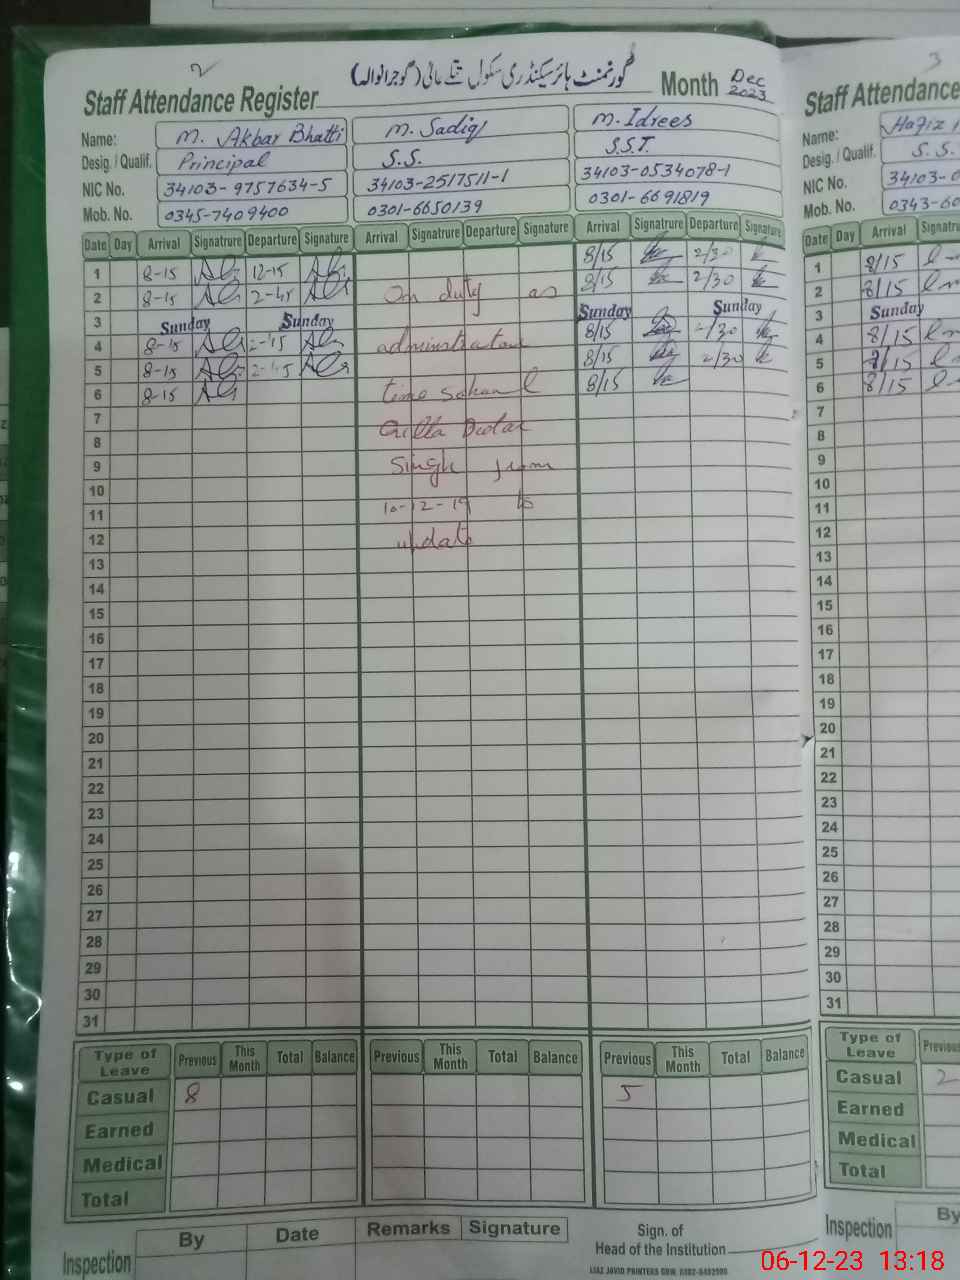 2 3
گورنمنٹ ہائر سیکنڈری سکول تتلے عالی (گوجرانوالہ)
Staff Attendance Register Month Dec 2023 Staff Attendance
Name: M. Akbar Bhatti M. Sadiq M. Idrees Name: Hafiz
Desig. / Qualif. Principal S.S. S.S.T. Desig. / Qualif. S.S.
NIC No. 34103-9757634-5 34103-2517511-1 34103-0534078-1 NIC No. 34103-0
Mob. No. 0345-7409400 0301-6650139 0301-6691819 Mob. No. 0343-60
Date Day Arrival Signatrure Departure Signature Arrival Signatrure Departure Signature Arrival Signatrure Departure Signature Date Day Arrival Signatru
1 8-15 12-15 8/15 2/30 1 8/15
2 8-15 2-45 On duty as 8/15 2/30 2 8/15
3 Sunday Sunday Sunday Sunday 3 Sunday
4 8-15 2-45 administrator 8/15 2/30 4 8/15
5 8-15 2-45 8/15 2/30 5 8/15
6 8-15 time School 8/15 6 8/15
7 7
8 Qilla Deedar 8
9 Singh from 9
10 10
11 10-12-19 to 11
12 update 12
13 13
14 14
15 15
16 16
17 17
18 18
19 19
20 20
21 21
22 22
23 23
24 24
25 25
26 26
27 27
28 28
29 29
30 30
31 31
Type of Leave Previous This Month Total Balance Previous This Month Total Balance Previous This Month Total Balance Type of Leave Previous
Casual 8 5 Casual 2
Earned Earned
Medical Medical
Total Total
Inspection By Date Remarks Signature Sign. of Head of the Institution Inspection By
IJAZ JAVID PRINTERS GRW.
06-12-23 13:18